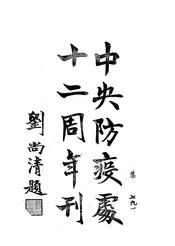 中央防疫處
十二周年刊
劉尚清題